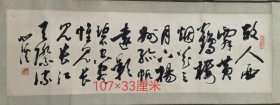 故人西
辞黄
鹤楼
烟花三
月下揚
州孤帆
遠影
碧空尽
惟見
長江
天際流
107×33厘米